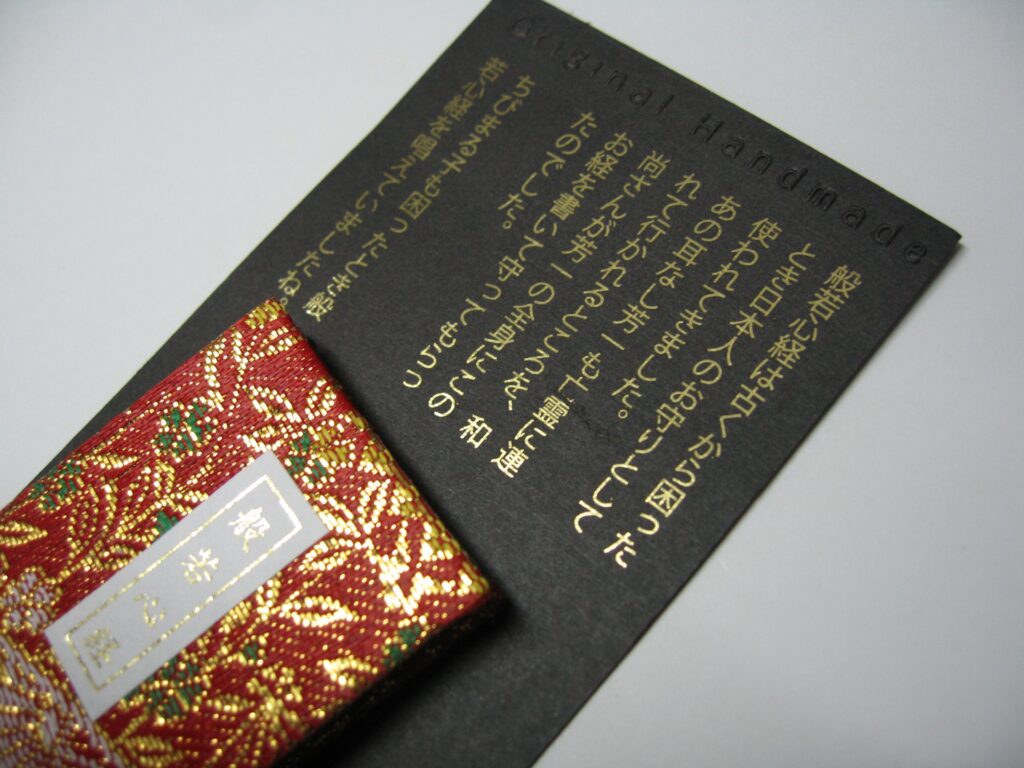 Original Handmade
般若心経は古くから困った
とき日本人のお守りとして
使われてきました。
あの耳なし芳一も亡霊に連
れて行かれるところを、和
尚さんが芳一の全身にこの
お経を書いて守ってもらっ
たのでした。
ちびまる子も困ったとき般
若心経を唱えていましたね。
般若心経